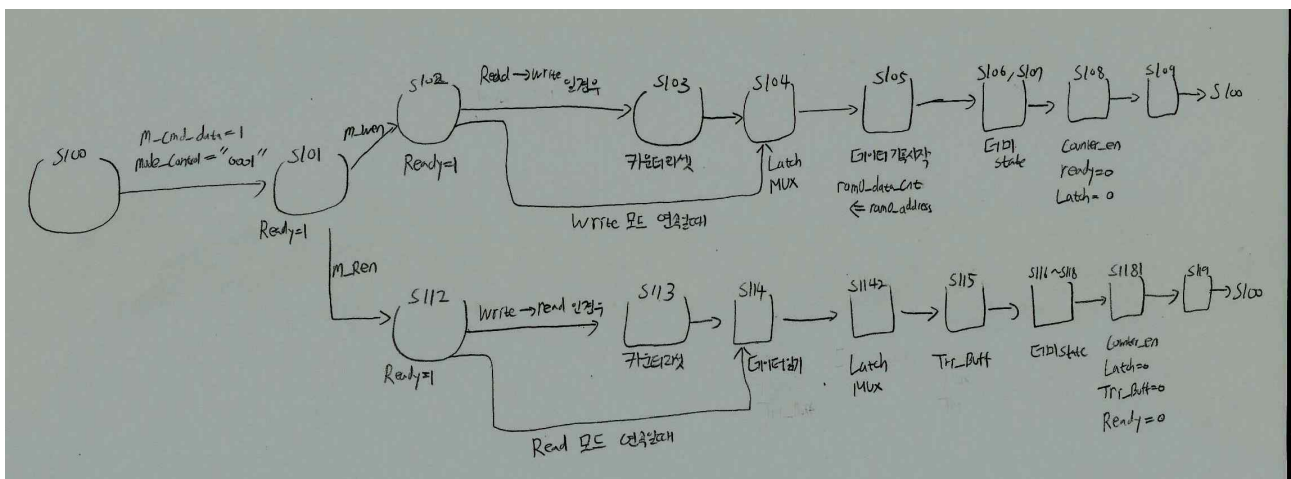 S100
M_cmd_data=1
mode_control="0001"
S101
Ready=1
M_wen
S102
Ready=1
Read→write 인경우
S103
카운터리셋
S104
Latch
MUX
Write 모드 연속일때
S105
데이터기록시작
ram0_data_cnt
⇐ ram0_address
S106, S107
더미
state
S108
Counter_en
ready=0
Latch=0
S109
S100
M_Ren
S112
Ready=1
Write→read 인경우
S113
카운터리셋
S114
데이터읽기
Read 모드 연속일때
S1142
Latch
MUX
S115
Tri_Buff
S116~S118
더미state
S1181
Counter_en
Latch=0
Tri_Buff=0
Ready=0
S119
S100